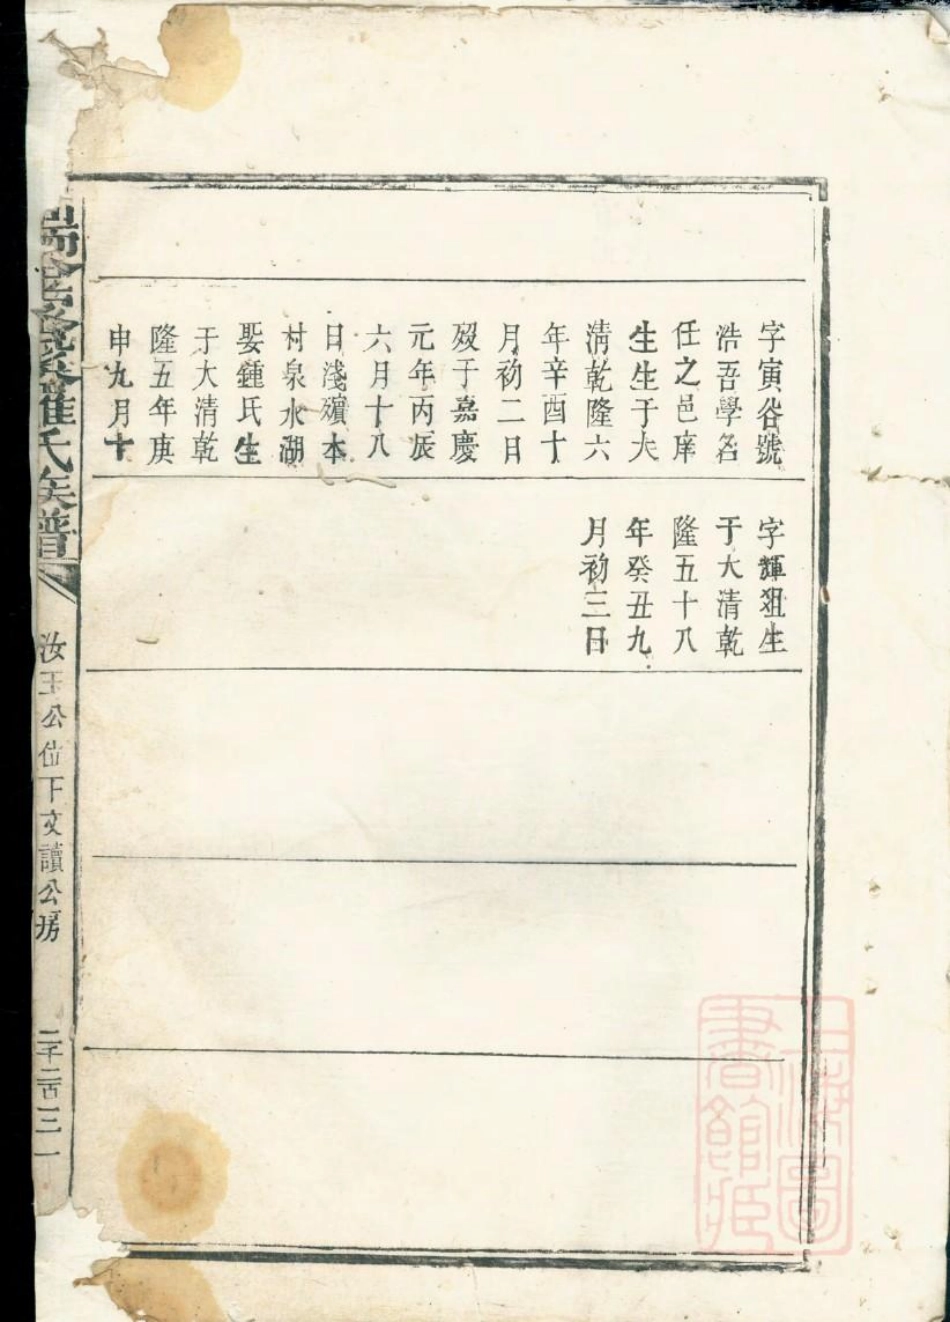 字寅谷號
浩吾學名
任之邑庠
生生于大
清乾隆六
年辛酉十
月初二日
歿于嘉慶
元年丙辰
六月十八
日淺礦本
村泉水湖
娶鍾氏生
于大清乾
隆五年庚
申九月十
字輝祖生
于大清乾
隆五十八
年癸丑九
月初三日
羅氏族譜
汝玉公位下文讀公房
二千二百三一
上海圖
書館藏